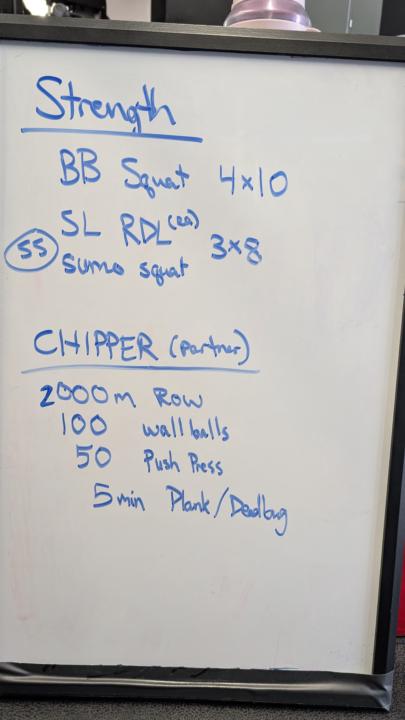 Strength
BB Squat 4x10
SL RDL (ea)
SS 3x8
Sumo squat
CHIPPER (partner)
2000m Row
100 wall balls
50 Push Press
5 min Plank/Deadbug